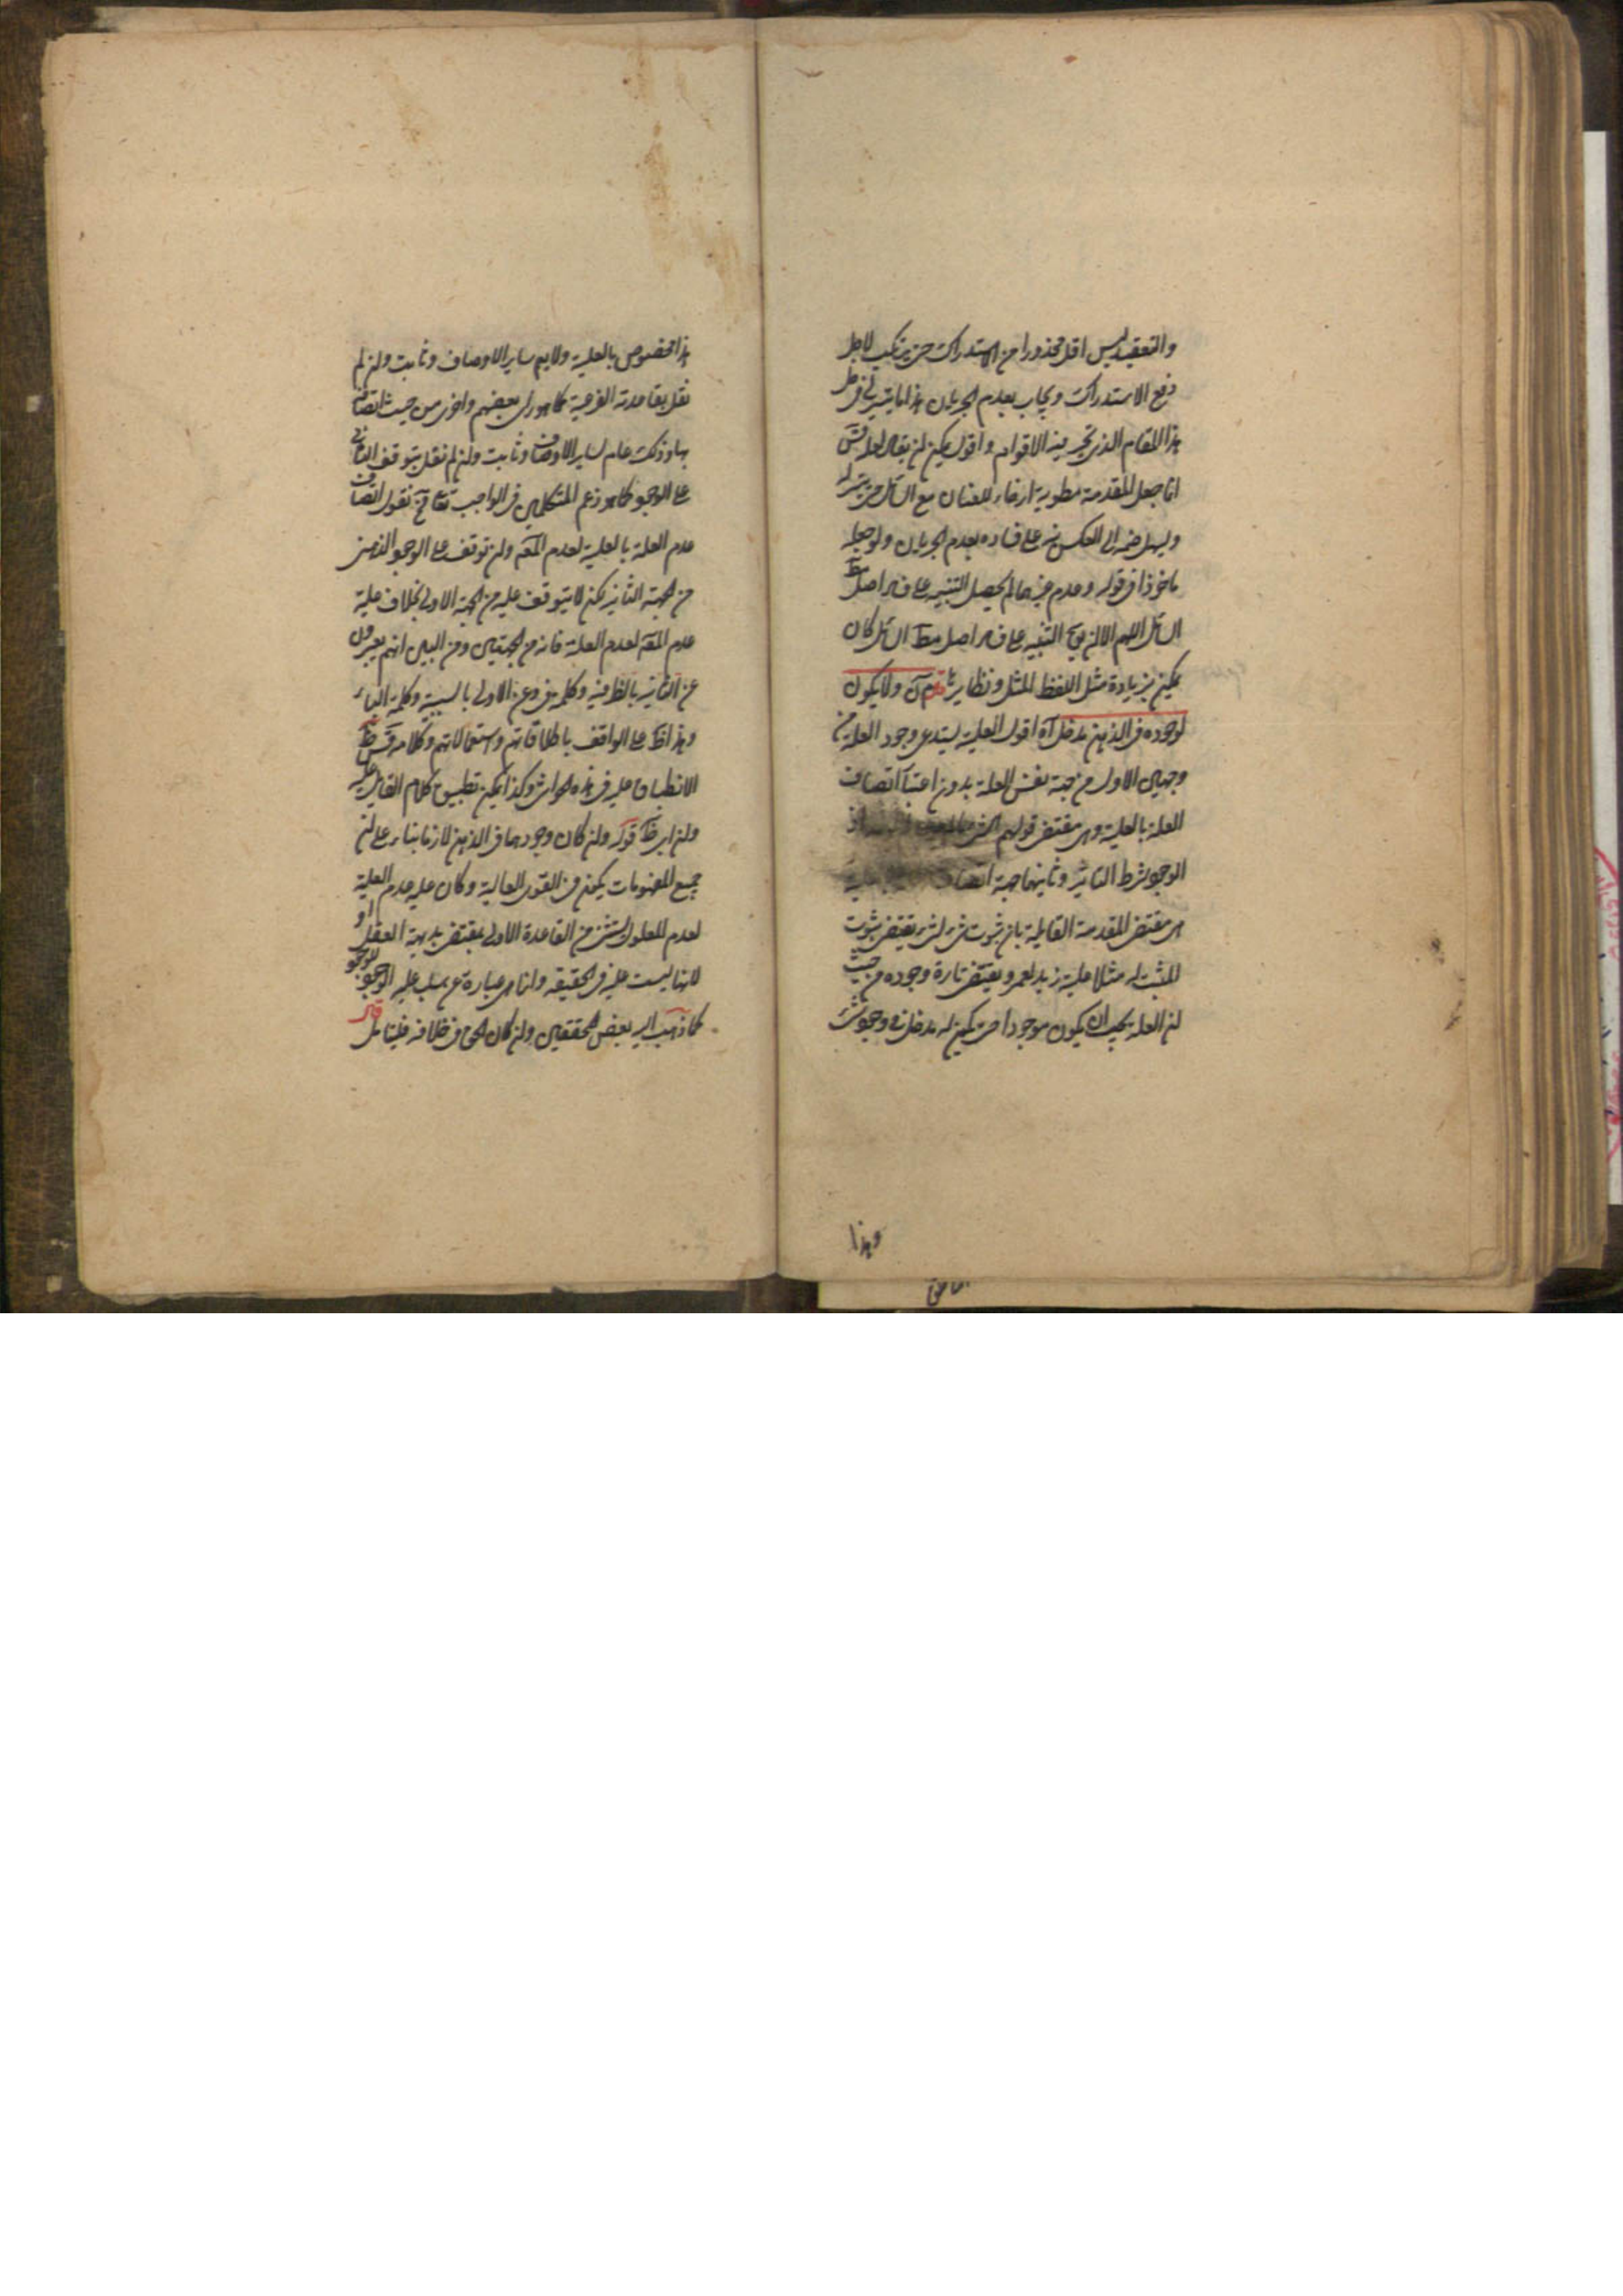 والتعقيد ليس اقل محذورا من الاستدراك حتى يرتكب لاجل
دفع الاستدراك ويجاب بعدم الجريان هذا ما تيسر لى فى حل
هذا المقام الذى تحير فيه الاقوام و اقول يمكن ان يقال لعله قس
انما جعل المقدمة مطوية ارخاء للعنان مع السائل حتى
ويسهل ضمه الى العكس ينبه على فساده بعدم الجريان ولو جعله
ماخوذا فى قوله وعدم عند عالم يحصل التنبيه على فساد اصل
السائل اللهم الا ان يقع التنبيه على فساد اصل مط السائل كان
يمكن بزيادة مثل اللفظ المثل ونظايرها قدم آه ولا يكون
لوجوده فى الذهن مدخل آه اقول العلية يستدعى وجود العلة من
وجهين الاول من جهة نفس العلة بدون اعتبا اتصاف
العلة بالعلية وهى مقتضى قولهم الشى
الوجود شرط التاثير وثانيهما جهة اتصاف
هى مقتضى المقدمة القايلة بان ثبوت شى لشى يقتضى ثبوت
المثبت له مثلا علية زيد لعمرو يقتضى تارة وجوده من حيث
ان العلة يجب ان يكون موجودا حتى يمكن له مدخل فى وجود شى
وهذا
هذا مخصوص بالعلية ولا يعم ساير الاوصاف وثابت وان لم
نقل بقاعدة الفرعية كما هو راى بعضهم واخرى من حيث اتصافه
بها وذلك عام لساير الاوصاف وثابت وان لم نقل بتوقف التاثير
على الوجود كما هو زعم المتكلمين فى الواجب تعا فح نقول اتصاف
عدم العلة بالعلية لعدم المعه وان توقف على الوجود الذهنى
من الجهة الثانية لكن لا يتوقف عليه من الجهة الاولى بخلاف علية
عدم المعه لعدم العلة فانه من الجهتين ومن البين انهم يعبرون
عن الثانية بالظرفية وكلمة فى وعن الاولى بالسببية وكلمة الباء
وهذا ظ على الواقف باطلاقاتهم واستعمالاتهم وكلامه قس ظ
الانطباق عليه فى هذه الحواشى وكذا يمكن تطبيق كلام القايل عليه
وان ابى ظ قوله وان كان وجودهما فى الذهن لازما بناء على ان
جميع المفهومات يمكن فى القوى العالية وكان علية عدم العلية
لعدم المعلول مستثنى من القاعدة الاولى بمقتضى بديهة العقل او
لانها ليست علية فى الحقيقة وانما هى عبارة عن سلب علية الوجود للوجود
كما ذهب اليه بعض المحققين وان كان الحق فى خلافه فليتامل قال